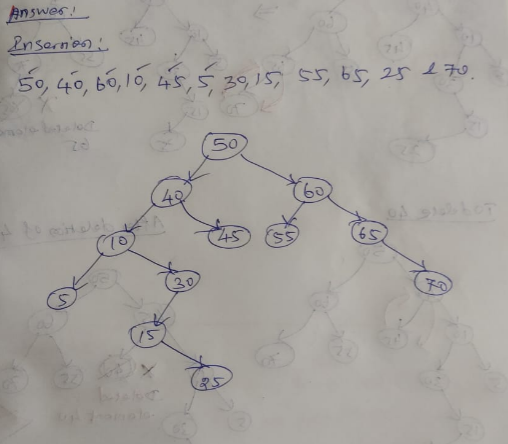 Answer:
Insertion:
50, 40, 60, 10, 45, 5, 30, 15, 55, 65, 25 & 70.
50
40 60
10 45 55 65
5 30 70
15
25